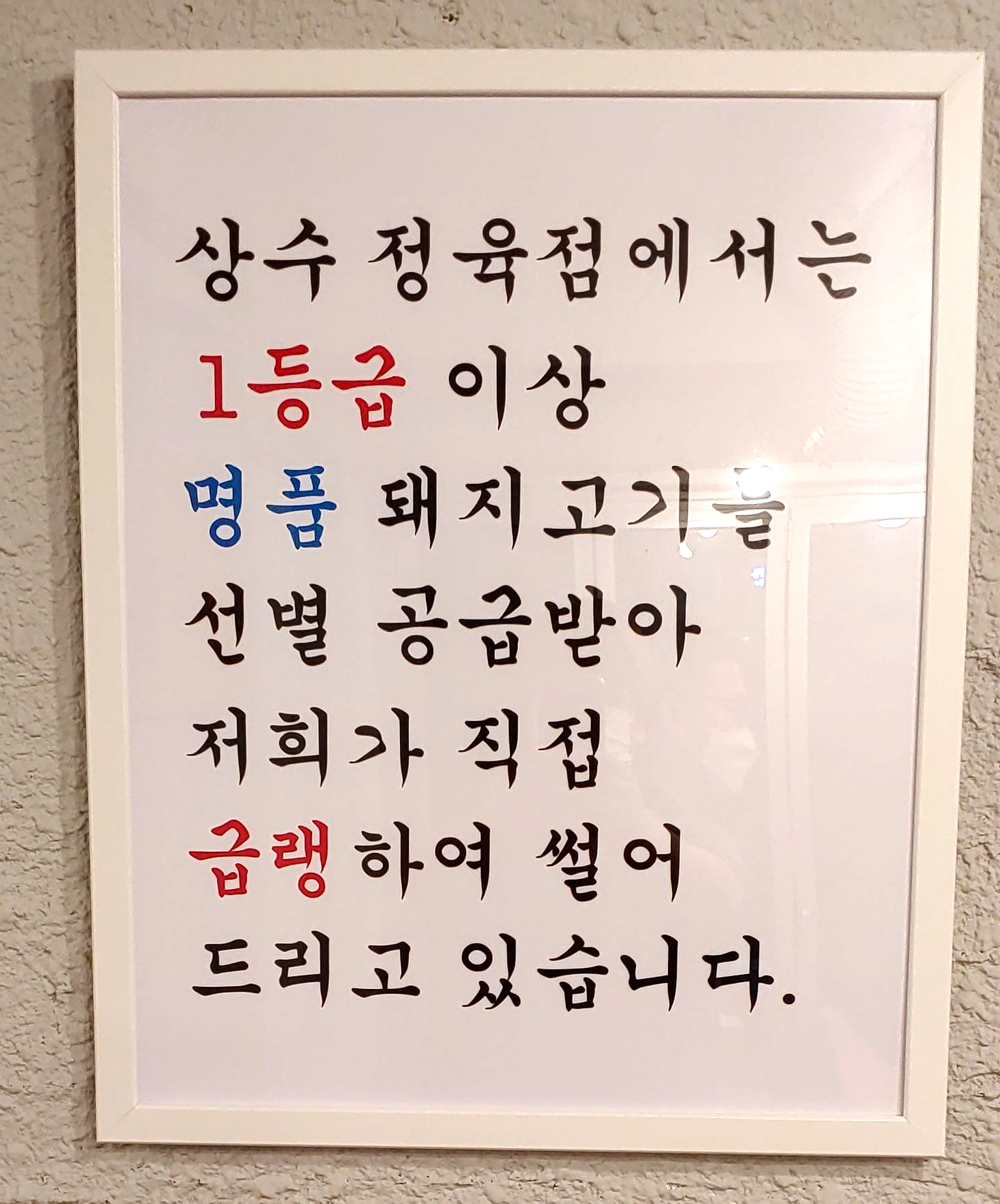 상수 정육점에서는
1등급 이상
명품 돼지고기를
선별 공급받아
저희가 직접
급랭하여 썰어
드리고 있습니다.